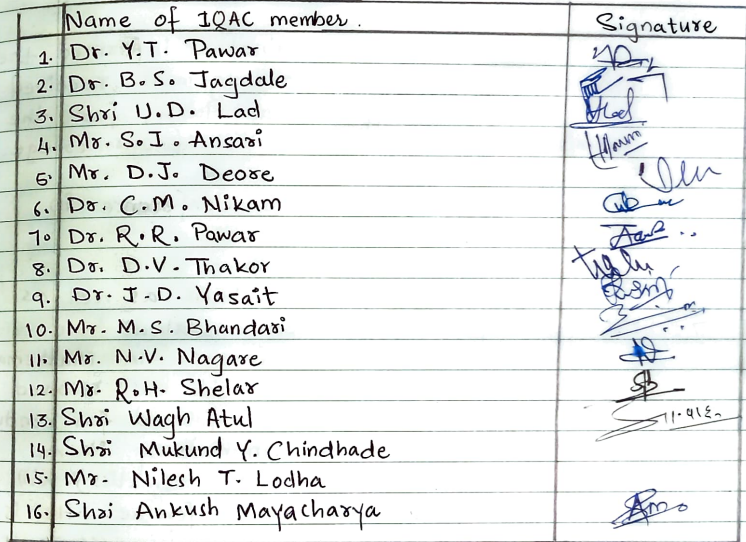 Name of IQAC member. Signature
1. Dr. Y.T. Pawar
2. Dr. B.S. Jagdale
3. Shri U.D. Lad
4. Mr. S.I. Ansari
5. Mr. D.J. Deore
6. Dr. C.M. Nikam
7. Dr. R.R. Pawar
8. Dr. D.V. Thakor
9. Dr. J.D. Vasait
10. Mr. M.S. Bhandari
11. Mr. N.V. Nagare
12. Mr. R.H. Shelar
13. Shri Wagh Atul
14. Shri Mukund Y. Chindhade
15. Mr. Nilesh T. Lodha
16. Shri Ankush Mayacharya